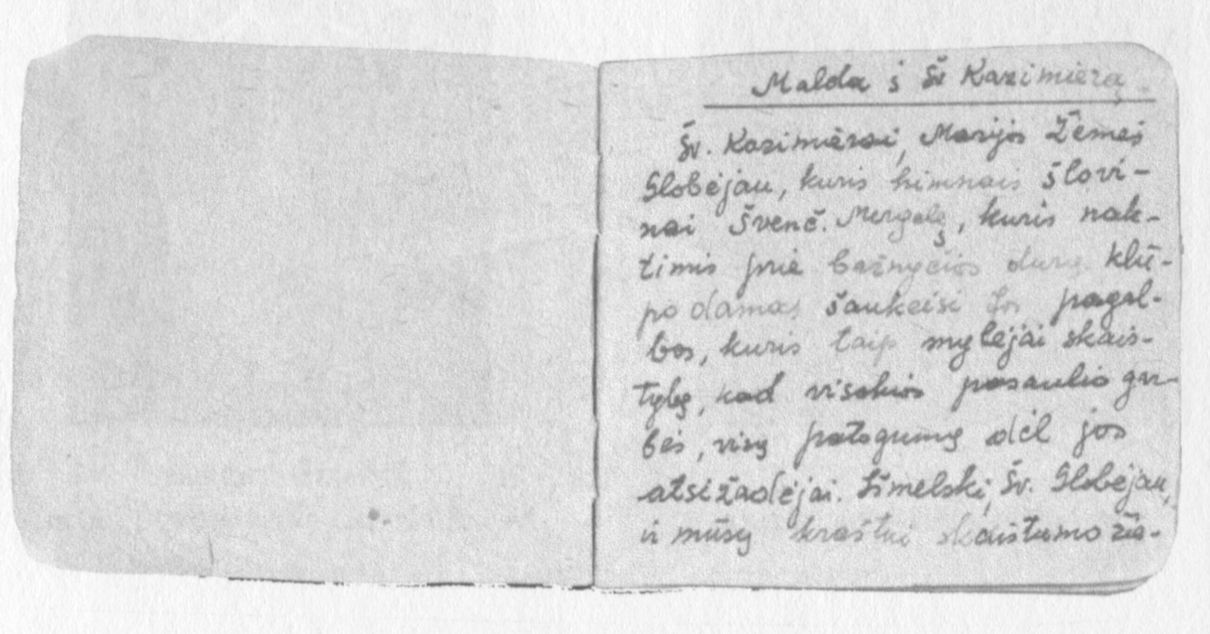 Malda į Šv Kazimierą
Šv. Kazimierai, Marijos Žemės
Globėjau, kuris himnais šlovi-
nai Švenč. Mergelę, kuris nak-
timis prie bažnyčios durų klū-
podamas šaukeisi Jos pagal-
bos, kuris taip mylėjai skais-
tybę, kad visokios pasaulio gar-
bės, visų patogumų dėl jos
atsižadėjai. Išmelski, Šv. Globėjau,
ir mūsų kraštui skaistumo žie-